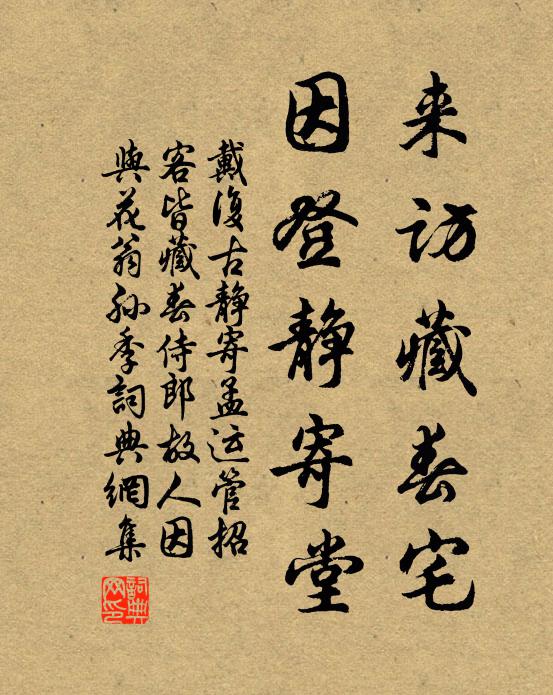 来访藏春宅
因登静寄堂
戴復古静寄孟运管招
客皆藏春侍郎故人因
與花翁孙季詞典網集
詞典
网印